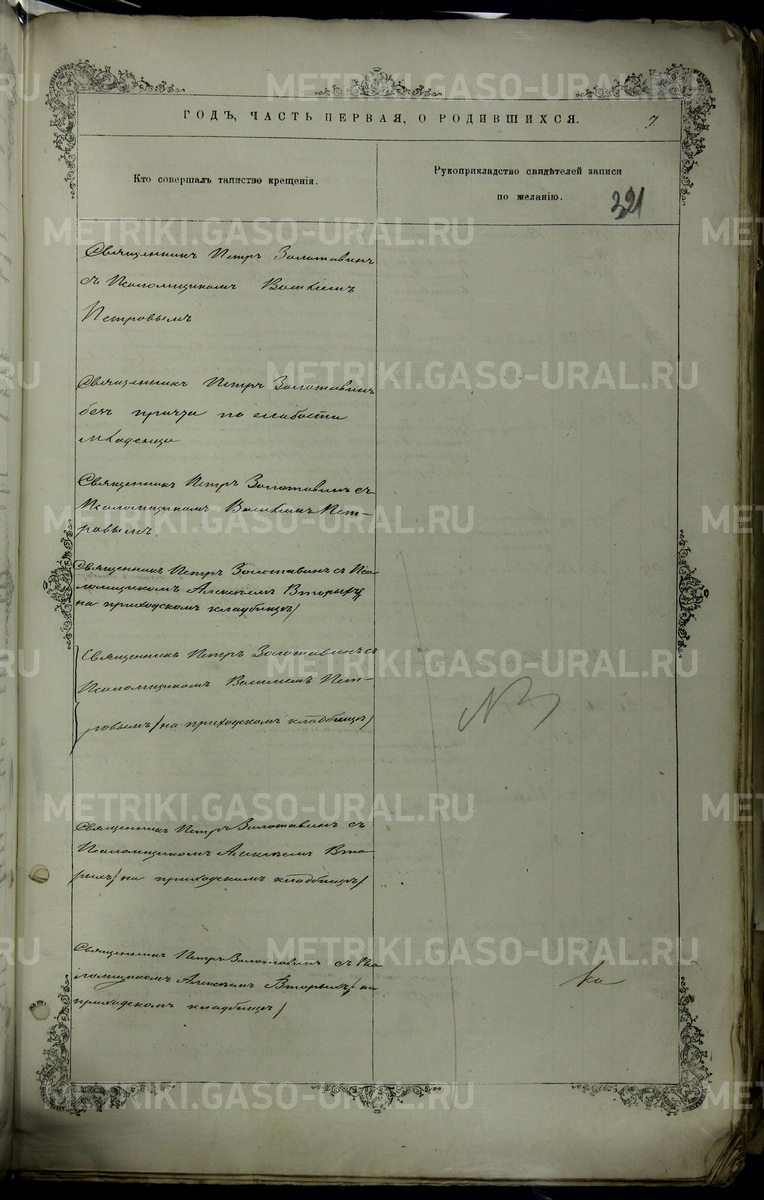 METRIKI.GASO-URAL.RU
ГОДЪ, ЧАСТЬ ПЕРВАЯ, О РОДИВШИХСЯ.
7.
Кто совершалъ таинство крещенія.
Рукоприкладство свидѣтелей записи
по желанію.
321
Священникъ Петръ Золотавинъ
съ Псаломщикомъ Василіемъ
Петровымъ
Священникъ Петръ Золотавинъ
безъ причта по слабости
младенца
Священникъ Петръ Золотавинъ съ
Псаломщикомъ Василіемъ Пет-
ровымъ.
Священникъ Петръ Золотавинъ съ Пса
ломщикомъ Алексѣемъ Вторыхъ
на приходскомъ кладбищѣ/
Священникъ Петръ Золотавинъ съ
Псаломщикомъ Василіемъ Пет-
ровымъ/на приходскомъ кладбищѣ/
Священникъ Петръ Золотавинъ съ
Псаломщикомъ Алексѣемъ Вто-
рыхъ/на приходскомъ кладбищѣ/
Священникъ Петръ Золотавинъ съ Пса
ломщикомъ Алексѣемъ Вторыхъ/на
приходскомъ кладбищѣ/